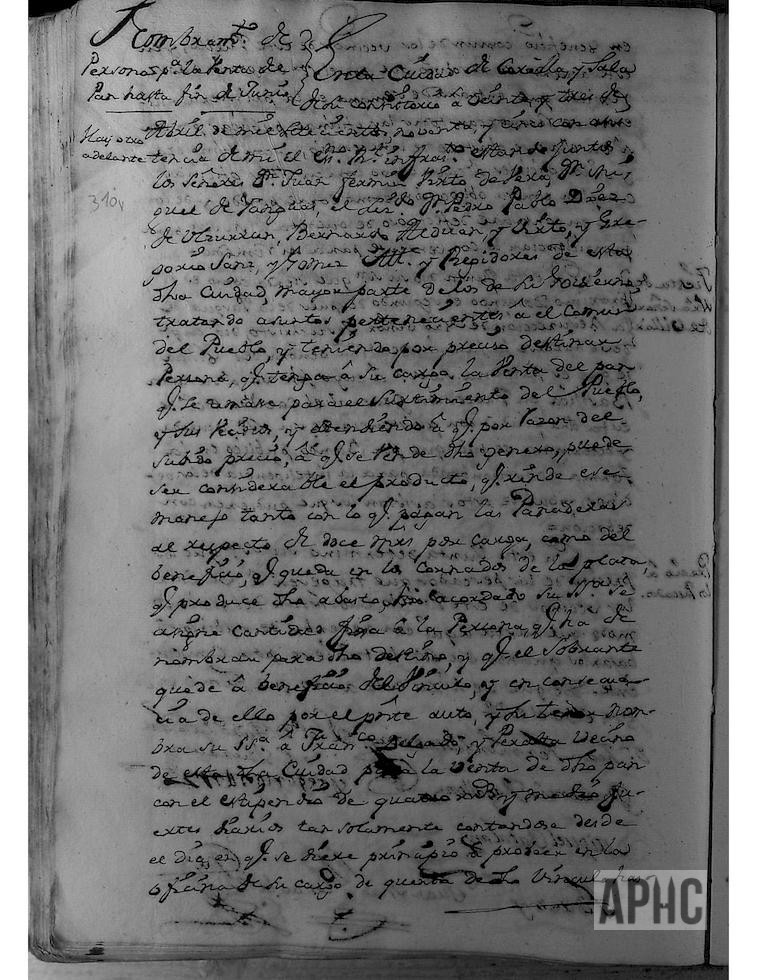 Nombramto. de
Persona pa. la Venta de
Pan hasta fin de Junio
Hay otro
adelante
310v
En la Ciudad de Corella, y Sala
de su consistorio a veinte y tres de
Abril de mil setecientos noventa, y cinco con asis-
tencia de mi el Sno. Rl. infraso. estando juntos
los señores Dn. Juan fermin Virto de Vera, Dn. Mi-
guel de Yanguas, el Lizdo. Dn. Pedro Pablo Diaz
de Urzurrun, Bernardo Medrano, y Virto, y Gre-
gorio Sanz, y Gomez Alle. y Regidores de esta
dha Ciudad, mayor parte de los de su Govierno,
tratando asuntos pertenecientes a el Comun
del Pueblo, y teniendo por preciso destinar
Persona, q. tenga â su cargo la Venta del pan
q. se amase para el surtimiento del Pueblo,
y sus Vecinos, y atendiendo â q. por razon del
subido precio, â q. se Vende dho genero, puede
ser considerable el producto, q. rinde ese
manejo tanto con lo q. pagan las Panaderas
al respecto de doce mrs por carga, como del
beneficio, q. queda en los cornados de la plata,
q. produce dho abasto, acordado su SSa. se
asigne cantidad fixa â la Persona, q. hâ de
nombrar para dho destino, y q. el Sobrante
quede â beneficio del Vinculo, y en consequen-
cia de ello por el pnte auto, y su tenor nom-
bra su SSa. â Franco. Delgado, y Peralta vecino
de esta dha Ciudad para la Venta de dho pan
con el estipendio de quatro y medio fu-
ertes diarios tan solamente contandose desde
el dia, en q. se diere principio â proveer en la
oficina de su cargo de quenta de dho Vinculo
APHC